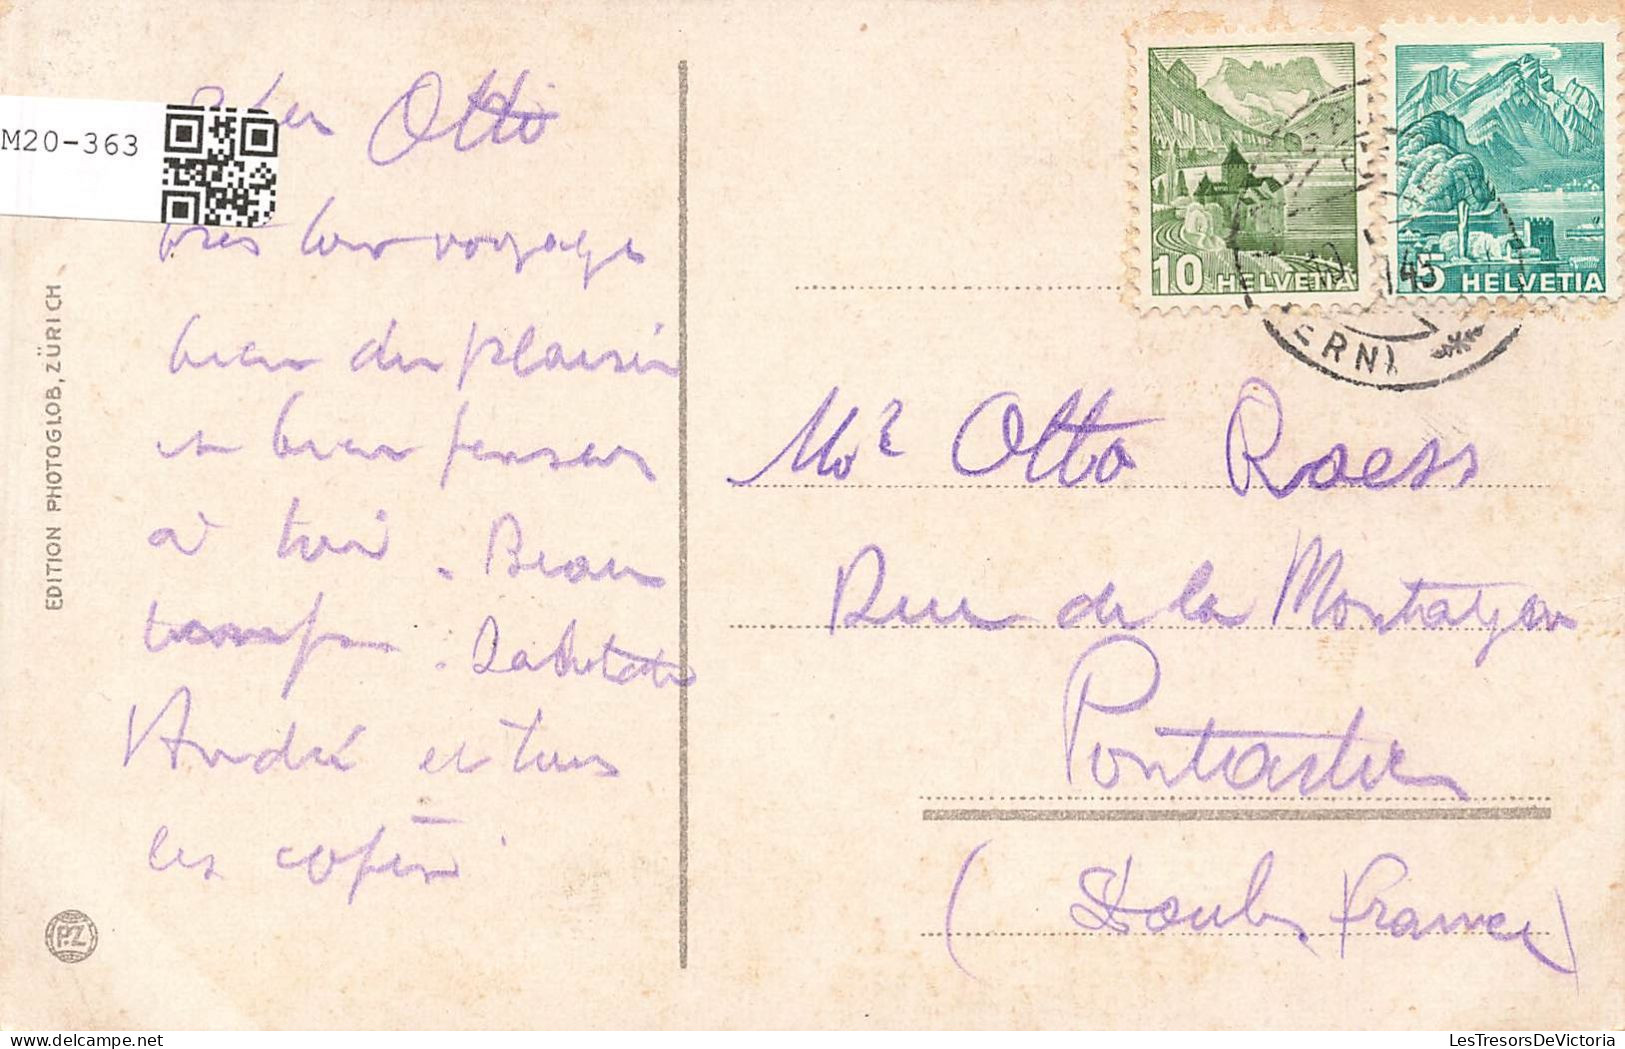 M20-363
Otto
voyage
bien du plaisir
et bien penser
à toi. Beau
temps.
André et tous
les copins
EDITION PHOTOGLOB, ZÜRICH
P.Z
10 HELVETIA
5 HELVETIA
ERN)
Mr Otto Roess
Rue de la Montagne
Pontarlier
(Doubs France)
LesTresorsDeVictoria.com